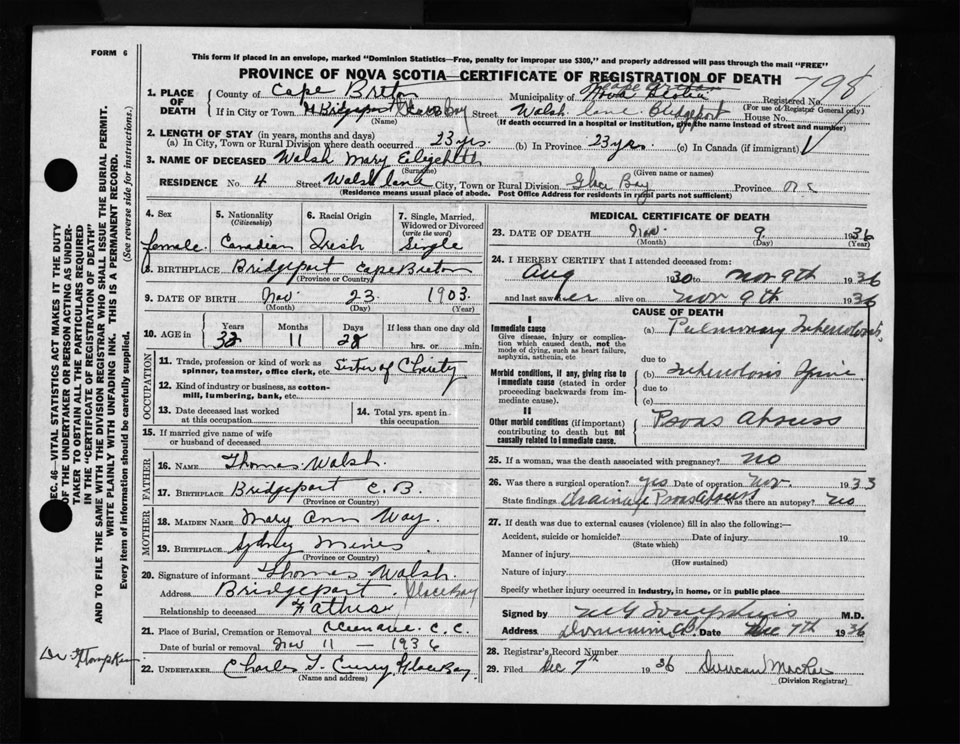 FORM 6
This form if placed in an envelope, marked "Dominion Statistics—Free, penalty for improper use $300," and properly addressed will pass through the mail "FREE"
PROVINCE OF NOVA SCOTIA—CERTIFICATE OF REGISTRATION OF DEATH
798
1. PLACE OF DEATH
County of Cape Breton Municipality of Cape Breton Nova Scotia Registered No.
(For use of Registrar General only)
If in City or Town Bridgeport Glace Bay Street Walsh Lane Bridgeport House No.
(Name) (If death occurred in a hospital or institution, give the name instead of street and number)
2. LENGTH OF STAY (in years, months and days)
(a) In City, Town or Rural Division where death occurred 23 yrs. (b) In Province 23 yrs. (c) In Canada (if immigrant)
3. NAME OF DECEASED Walsh Mary Elizabeth
(Surname) (Given name or names)
RESIDENCE No. 4 Street Walsh Lane City, Town or Rural Division Glace Bay Province
(Residence means usual place of abode. Post Office Address for residents in rural parts not sufficient)
4. Sex
female
5. Nationality (Citizenship)
Canadian
6. Racial Origin
Irish
7. Single, Married, Widowed or Divorced (write the word)
Single
8. BIRTHPLACE Bridgeport Cape Breton
(Province or Country)
9. DATE OF BIRTH Nov 23 1903
(Month) (Day) (Year)
10. AGE in
Years Months Days If less than one day old
32 11 28 hrs. or min.
OCCUPATION
11. Trade, profession or kind of work as spinner, teamster, office clerk, etc. Sister of Charity
12. Kind of industry or business, as cotton-mill, lumbering, bank, etc.
13. Date deceased last worked at this occupation
14. Total yrs. spent in this occupation
15. If married give name of wife or husband of deceased
FATHER
16. NAME Thomas Walsh
17. BIRTHPLACE Bridgeport C.B.
(Province or Country)
MOTHER
18. MAIDEN NAME Mary Ann Way
19. BIRTHPLACE Sydney Mines
(Province or Country)
20. Signature of informant Thomas Walsh
Address Bridgeport. Glace Bay
Relationship to deceased Father
21. Place of Burial, Cremation or Removal
Date of burial or removal Nov 11 — 1936
22. UNDERTAKER Charles T. Curry Glace Bay
(Name and address)
MEDICAL CERTIFICATE OF DEATH
23. DATE OF DEATH Nov 9 1936
(Month) (Day) (Year)
24. I HEREBY CERTIFY that I attended deceased from:
Aug 1930 to Nov 9th 1936
and last saw her alive on Nov 9th 1936
CAUSE OF DEATH
I
Immediate cause
Give disease, injury or complication which caused death, not the mode of dying, such as heart failure, asphyxia, asthenia, etc
(a) Pulmonary Tuberculosis
due to
Morbid conditions, if any, giving rise to immediate cause (stated in order proceeding backwards from immediate cause).
(b) Tuberculosis Spine
due to
(c)
II
Other morbid conditions (if important) contributing to death but not causally related to immediate cause.
Psoas Abscess
25. If a woman, was the death associated with pregnancy? no
26. Was there a surgical operation? yes Date of operation Nov 1933
State findings drainage Psoas Abscess Was there an autopsy? no
27. If death was due to external causes (violence) fill in also the following:—
Accident, suicide or homicide? Date of injury 19
(State which)
Manner of injury
(How sustained)
Nature of injury
Specify whether injury occurred in industry, in home, or in public place
Signed by M.D.
Address Dominion C.B. Date Dec 7th 1936
28. Registrar's Record Number
29. Filed Dec 7th 1936 Duncan MacRae
(Division Registrar)
SEC. 46—VITAL STATISTICS ACT MAKES IT THE DUTY
OF THE UNDERTAKER OR PERSON ACTING AS UNDER-
TAKER TO OBTAIN ALL THE PARTICULARS REQUIRED
IN THE "CERTIFICATE OF REGISTRATION OF DEATH"
AND TO FILE THE SAME WITH THE DIVISION REGISTRAR WHO SHALL ISSUE THE BURIAL PERMIT.
WRITE PLAINLY WITH UNFADING INK. THIS IS A PERMANENT RECORD.
Every item of information should be carefully supplied. (See reverse side for instructions.)
Dr